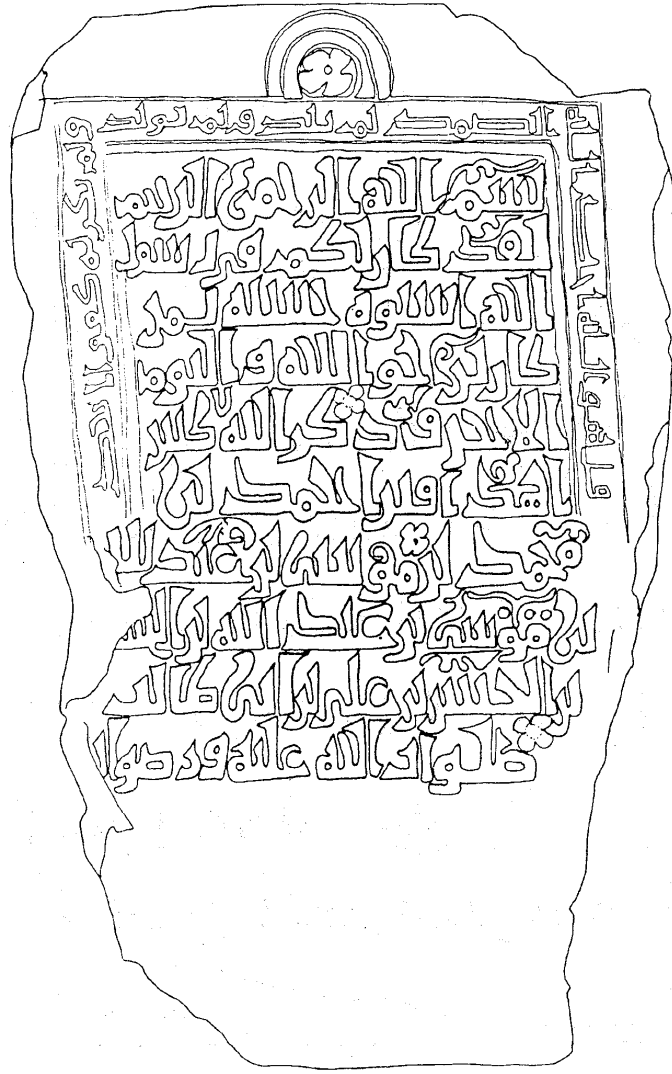 قل هو الله احد الله
الصمد لم يلد ولم يولد
ولم يكن له كفوا احد
بسم الله الرحمن الرحيم
لقد كان لكم في رسول
الله اسوة حسنة لمن
كان يرجو الله واليوم
الاخر وذكر الله كثير
ا هذا قبر احمد بن
محمد بن موسى بن عبد الله
بن موسى بن عبد الله بن الحس
بن الحسن بن علي بن ابي طالب
صلوات الله عليه ورضوا